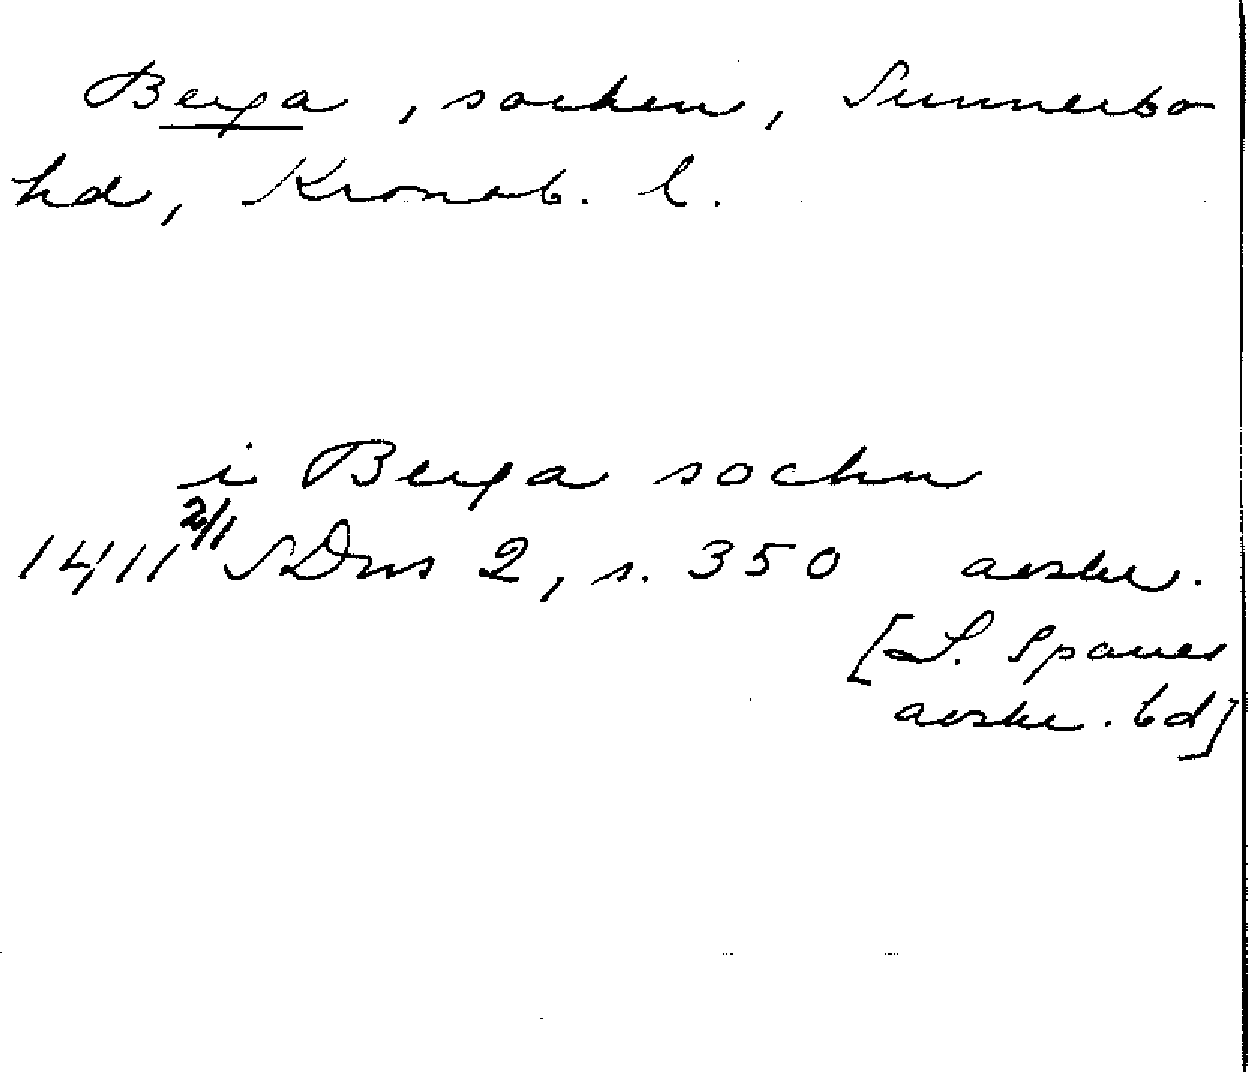 Berga, socken, Sunnerbo
hd, Kronob. l.
i Berga sochn
1411 2/1 SDns 2, s. 350 avskr.
[S. Sparres
avskr. bd]